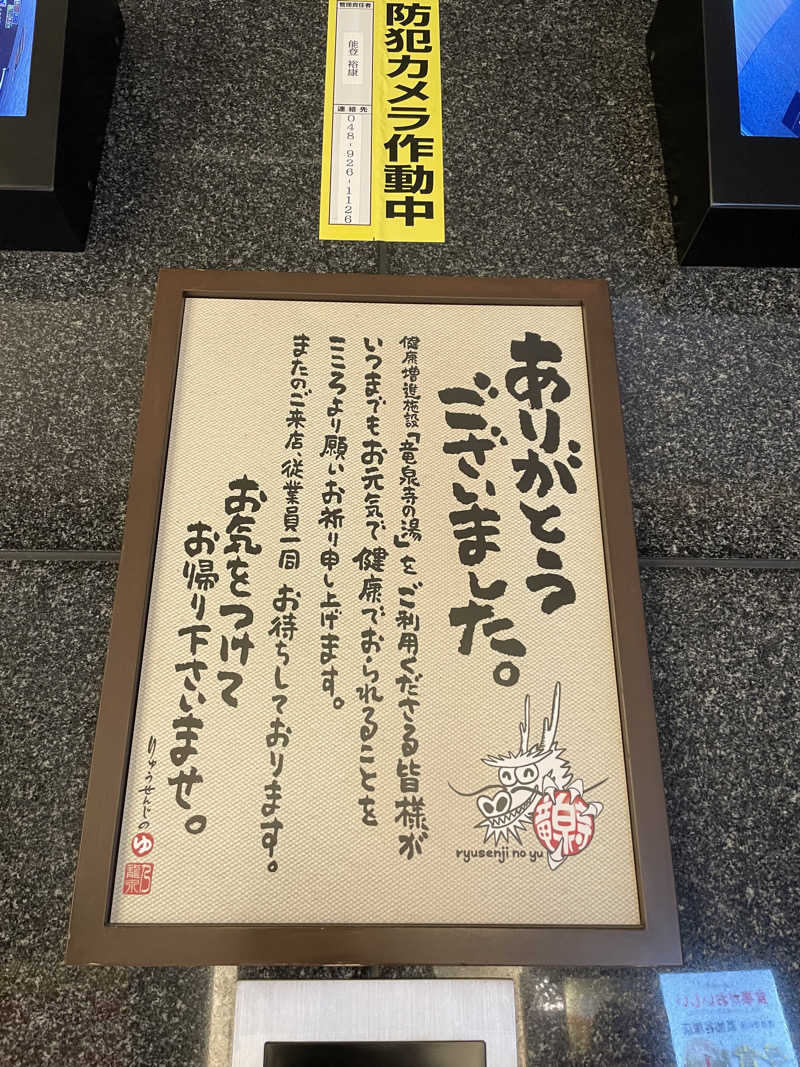 防犯カメラ作動中
管理責任者
能登 裕康
連絡先
048-926-1126
ありがとう
ございました。
健康増進施設「竜泉寺の湯」をご利用くださる皆様が
いつまでもお元気で健康でおられることを
こころより願いお祈り申し上げます。
またのご来店、従業員一同 お待ちしております。
お気をつけて
お帰り下さいませ。
りゅうせんじの
ゆ
竜泉寺
ryusenji no yu